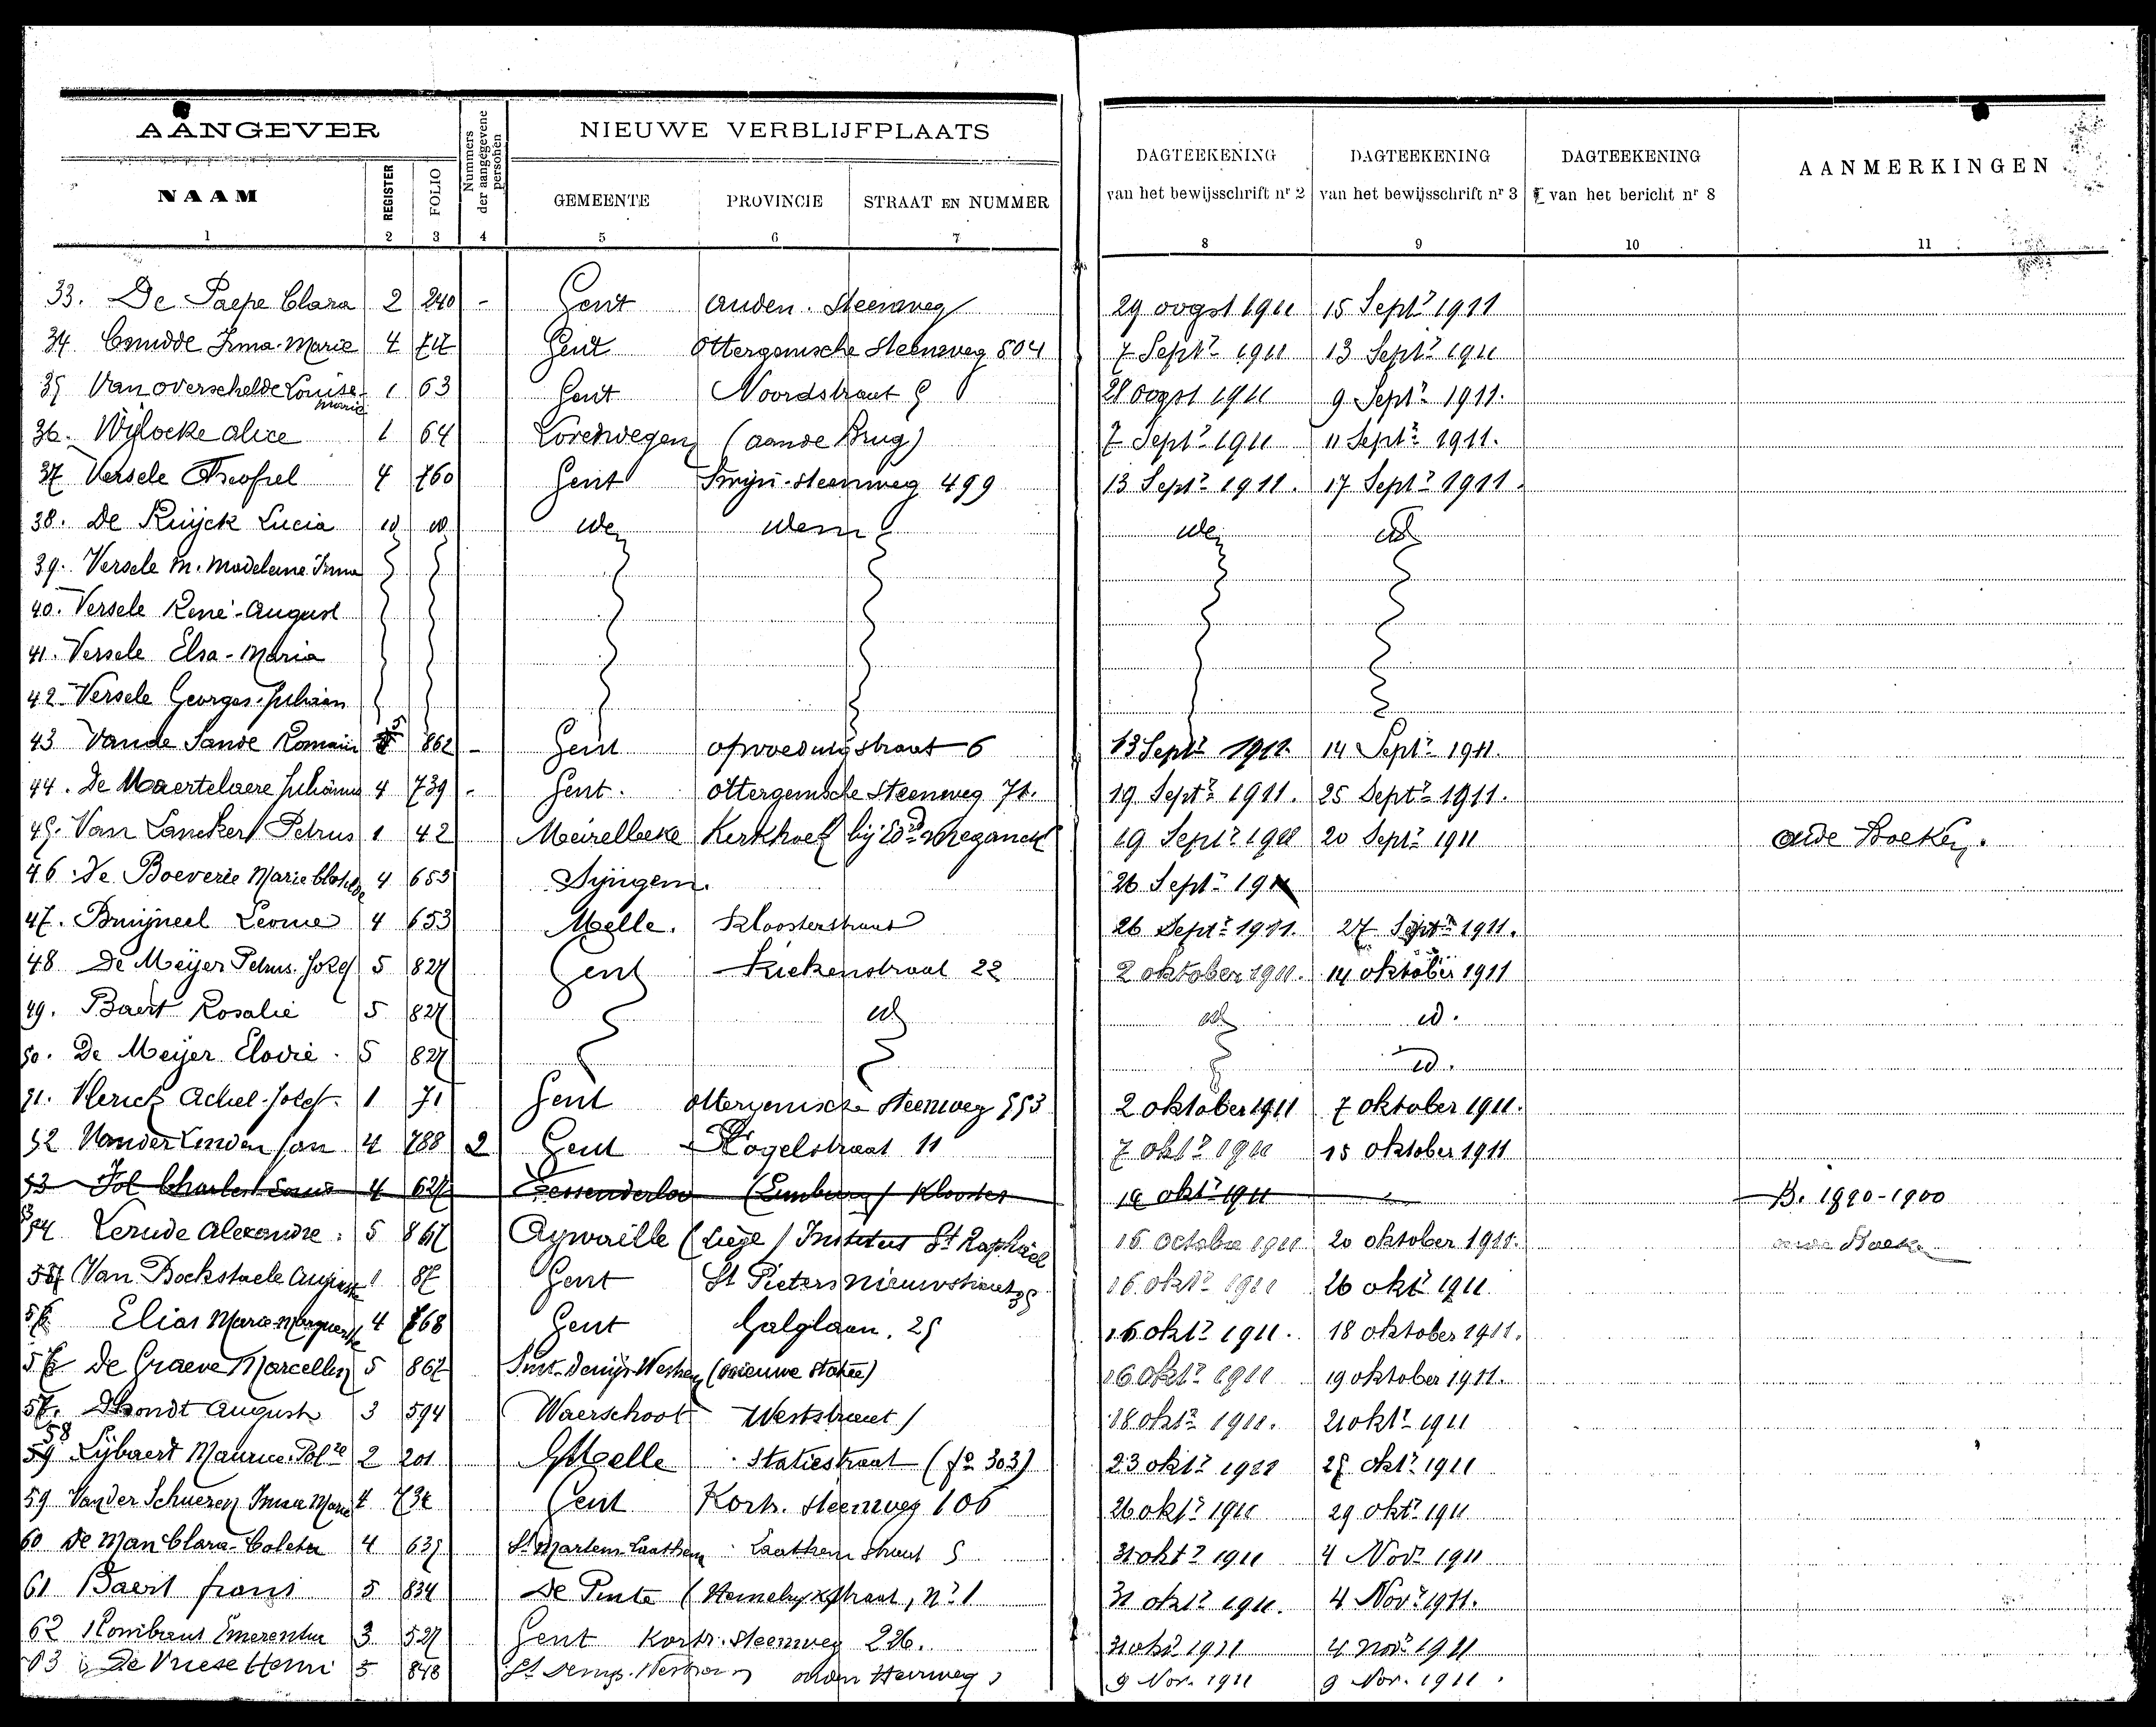 AANGEVER
Nummers der aangegevene personen
NIEUWE VERBLIJFPLAATS
DAGTEEKENING van het bewijsschrift nr 2
DAGTEEKENING van het bewijsschrift nr 3
DAGTEEKENING van het bericht nr 8
AANMERKINGEN
NAAM REGISTER FOLIO GEMEENTE PROVINCIE STRAAT EN NUMMER
1 2 3 4 5 6 7 8 9 10 11
33. De Paepe Clara 2 240 - Gent Steenweg 29 oogst 1911 15 Sept 1911
34 Cnudde Irma-Marie 4 Gent Ottergemsche Steenweg 504 7 Sept 1911 13 Sept 1911
35 Van overschelde Louise-Marie 1 63 Gent Noordstraat 9 Sept 1911.
36. Wylocke Alice 1 64 (aan de Brug) 7 Sept 1911 11 Sept 1911.
37 Versele 4 760 Gent steenweg 499 13 Sept 1911. 17 Sept 1911.
38. De Ruijck Lucia id id idem
39. Versele M. Madeleine Irma
40. Versele René-August
41. Versele Elsa-Maria
42 Versele Georges-
43 Van de Sande Romain 5 862 - Gent opvoedingstraat 6 13 Sept 14 Sept 1911.
44. De Maertelaere 4 739 - Gent. ottergemsche Steenweg 71. 19 Sept 1911. 25 Sept 1911.
45. Van Lancker Petrus 1 42 Meirelbeke Kerkhoek bij Meganck 19 Sept 1911 20 Sept 1911 Oude Boeken.
46. De Boeverie Marie Clotilde 4 653 Syngem. 26 Sept 1911
47. Bruijneel Leonie 4 653 Melle. Kloosterstraat 26 Sept 1911. 27 Sept 1911.
48 De Meijer Petrus Jozef 5 827 Gent Kiekenstraat 22 2 oktober 1911. 14 oktober 1911
49. Baert Rosalie 5 827 id id id.
50. De Meijer Elodie. 5 827 id.
51. Vlerick Achiel-Jozef. 1 71 Gent ottergemsche steenweg 553 2 oktober 1911 7 oktober 1911.
52 Van der Linden Jan 4 788 2 Gent Vogelstraat 11 7 okt 1911 15 oktober 1911
53 Jol Charles Louis 4 627 Tessenderloo (Limburg) Klooster okt 1911 B. 1890-1900
Lerude Alexandre. 5 867 Aywaille (Liège) Institut St Raphaël 16 Octobre 1911 20 oktober 1911.
Van Bockstaele 1 87 Gent St Pieters Nieuwstraat 16 okt 1911 26 okt 1911.
Elias Marie-Marguerite 4 768 Gent Galglaan. 25 16 okt 1911. 18 oktober 1911.
De Graeve Marcellin 5 867 Sint-Denijs-Westrem (nieuwe statie) 16 okt 1911 19 oktober 1911.
57. Dhondt August 3 594 Waerschoot Weststraat 18 okt 1911. 21 okt 1911
58 Lybaert Maurice 2 201 Melle Statiestraat (fo 303) 23 okt 1911 25 okt 1911
59 Van der Schueren Irma Marie 4 Gent Kortr. steenweg 106 26 okt 1911 29 okt 1911
60 De Man Clara-Coleta 4 635 St Martens-Laathem Laathem straat 5 31 okt 1911 4 Nov 1911
61 Baert Frans 5 834 De Pinte straat, no 1 31 okt 1911. 4 Nov 1911.
62 Rombaut Emerentia 3 527 Gent Kortr. steenweg 226. 31 okt 1911 4 Nov 1911
63 De Vriese Henri 5 848 St Denijs-Westrem Heirweg 9 Nov. 1911 9 Nov. 1911.